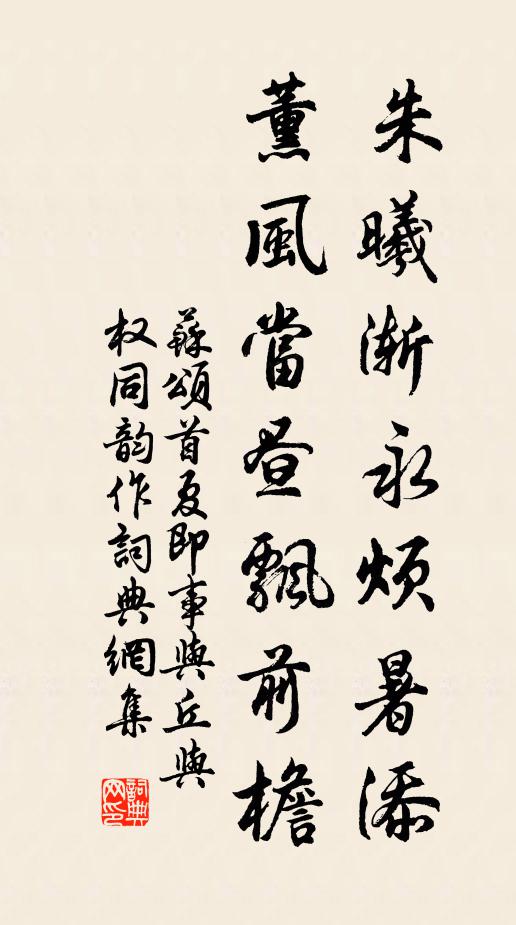 朱曦漸永煩暑添
薰風當昼飄前檐
蘇頌首夏即事與丘與
权同韵作詞典網集
詞典
网印